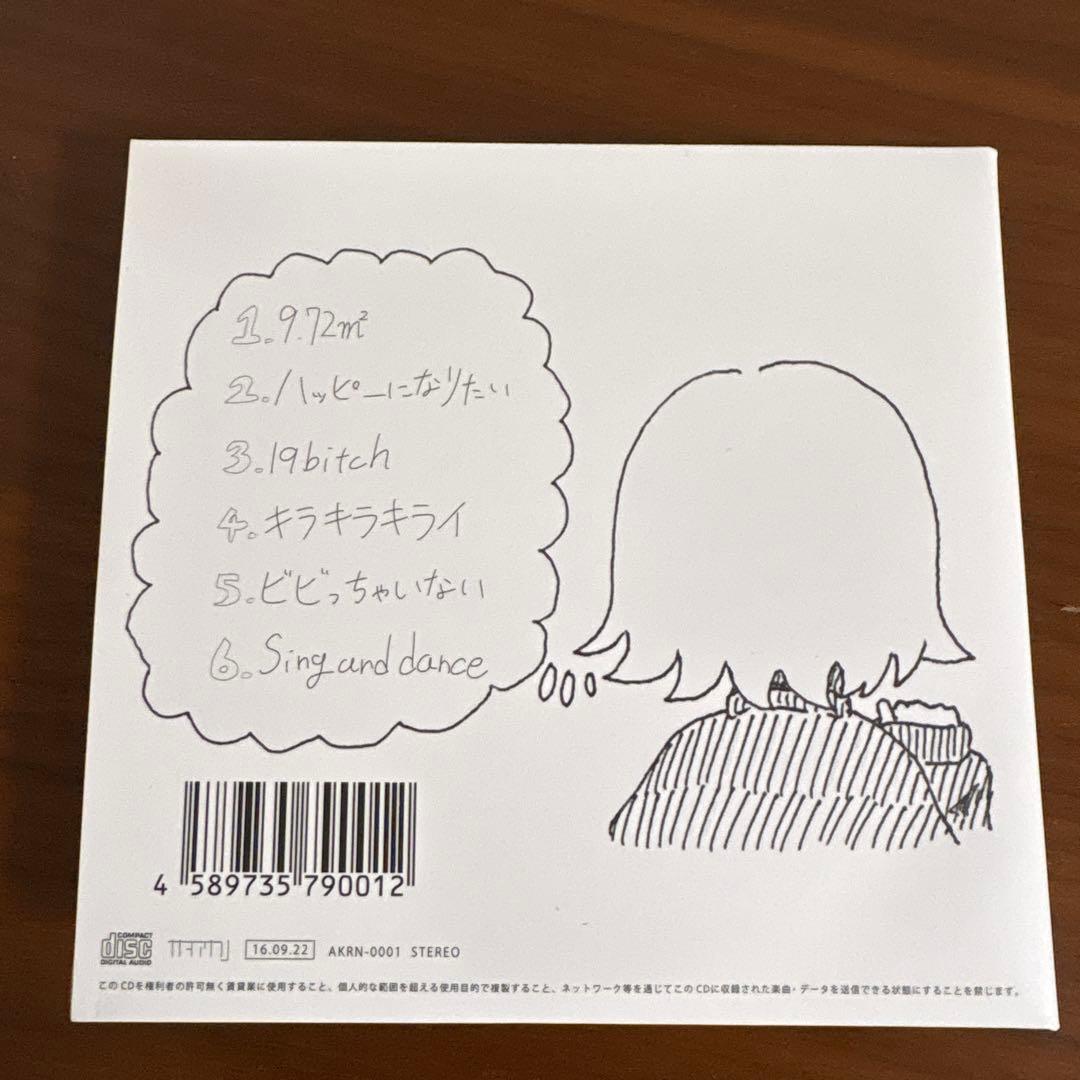 1.9.72㎡
2.ハッピーになりたい
3.19bitch
4.キラキラキライ
5.ビビっちゃいない
6.Sing and dance
4 589735 790012
COMPACT disc DIGITAL AUDIO
16.09.22 AKRN-0001 STEREO
このCDを権利者の許可無く賃貸業に使用すること、個人的な範囲を超える使用目的で複製すること、ネットワーク等を通じてこのCDに収録された楽曲・データを送信できる状態にすることを禁じます。